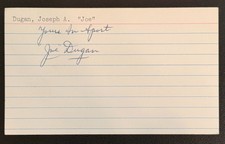 Dugan, Joseph A. "Joe"
Yours In Sport
Joe Dugan